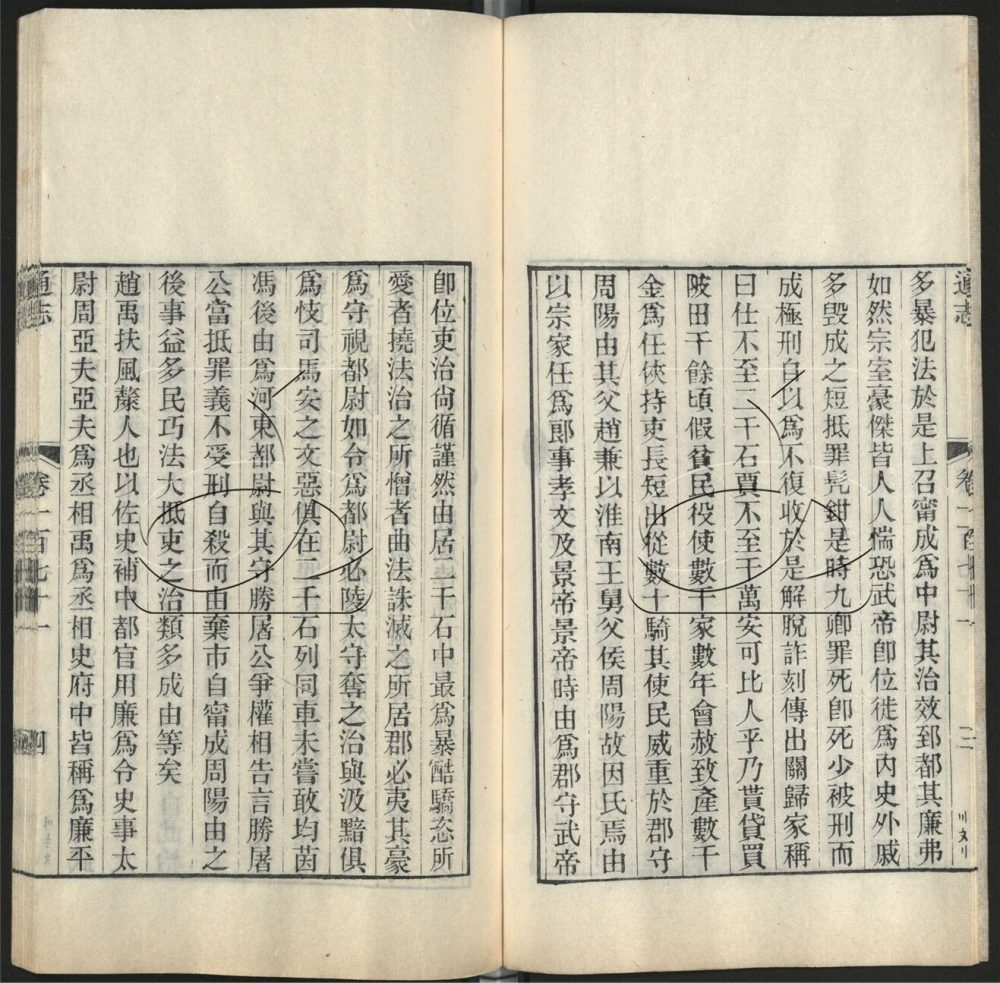 通志
多暴犯法於是上召甯成爲中尉其治效郅都其廉弗
如然宗室豪傑皆人人惴恐武帝卽位徙爲內史外戚
多毀成之短抵罪髡鉗是時九卿罪死卽死少被刑而
成極刑自以爲不復收於是解脫詐刻傳出關歸家稱
曰仕不至二千石賈不至千萬安可比人乎乃貰貸買
陂田千餘頃假貧民役使數千家數年會赦致產數千
金爲任俠持吏長短出從數十騎其使民威重於郡守
周陽由其父趙兼以淮南王舅父侯周陽故因氏焉由
以宗家任爲郞事孝文及景帝景帝時由爲郡守武帝
卽位吏治尙循謹然由居二千石中最爲暴酷驕恣所
愛者撓法治之所憎者曲法誅滅之所居郡必夷其豪
爲守視都尉如令爲都尉必陵太守奪之治與汲黯俱
爲忮司馬安之文惡俱在二千石列同車未嘗敢均茵
馮後由爲河東都尉與其守勝屠公爭權相告言勝屠
公當抵罪義不受刑自殺而由棄市自甯成周陽由之
後事益多民巧法大抵吏之治類多成由等矣
趙禹扶風斄人也以佐史補中都官用廉爲令史事太
尉周亞夫亞夫爲丞相禹爲丞相史府中皆稱爲廉平
通志
卷一百七十一
四